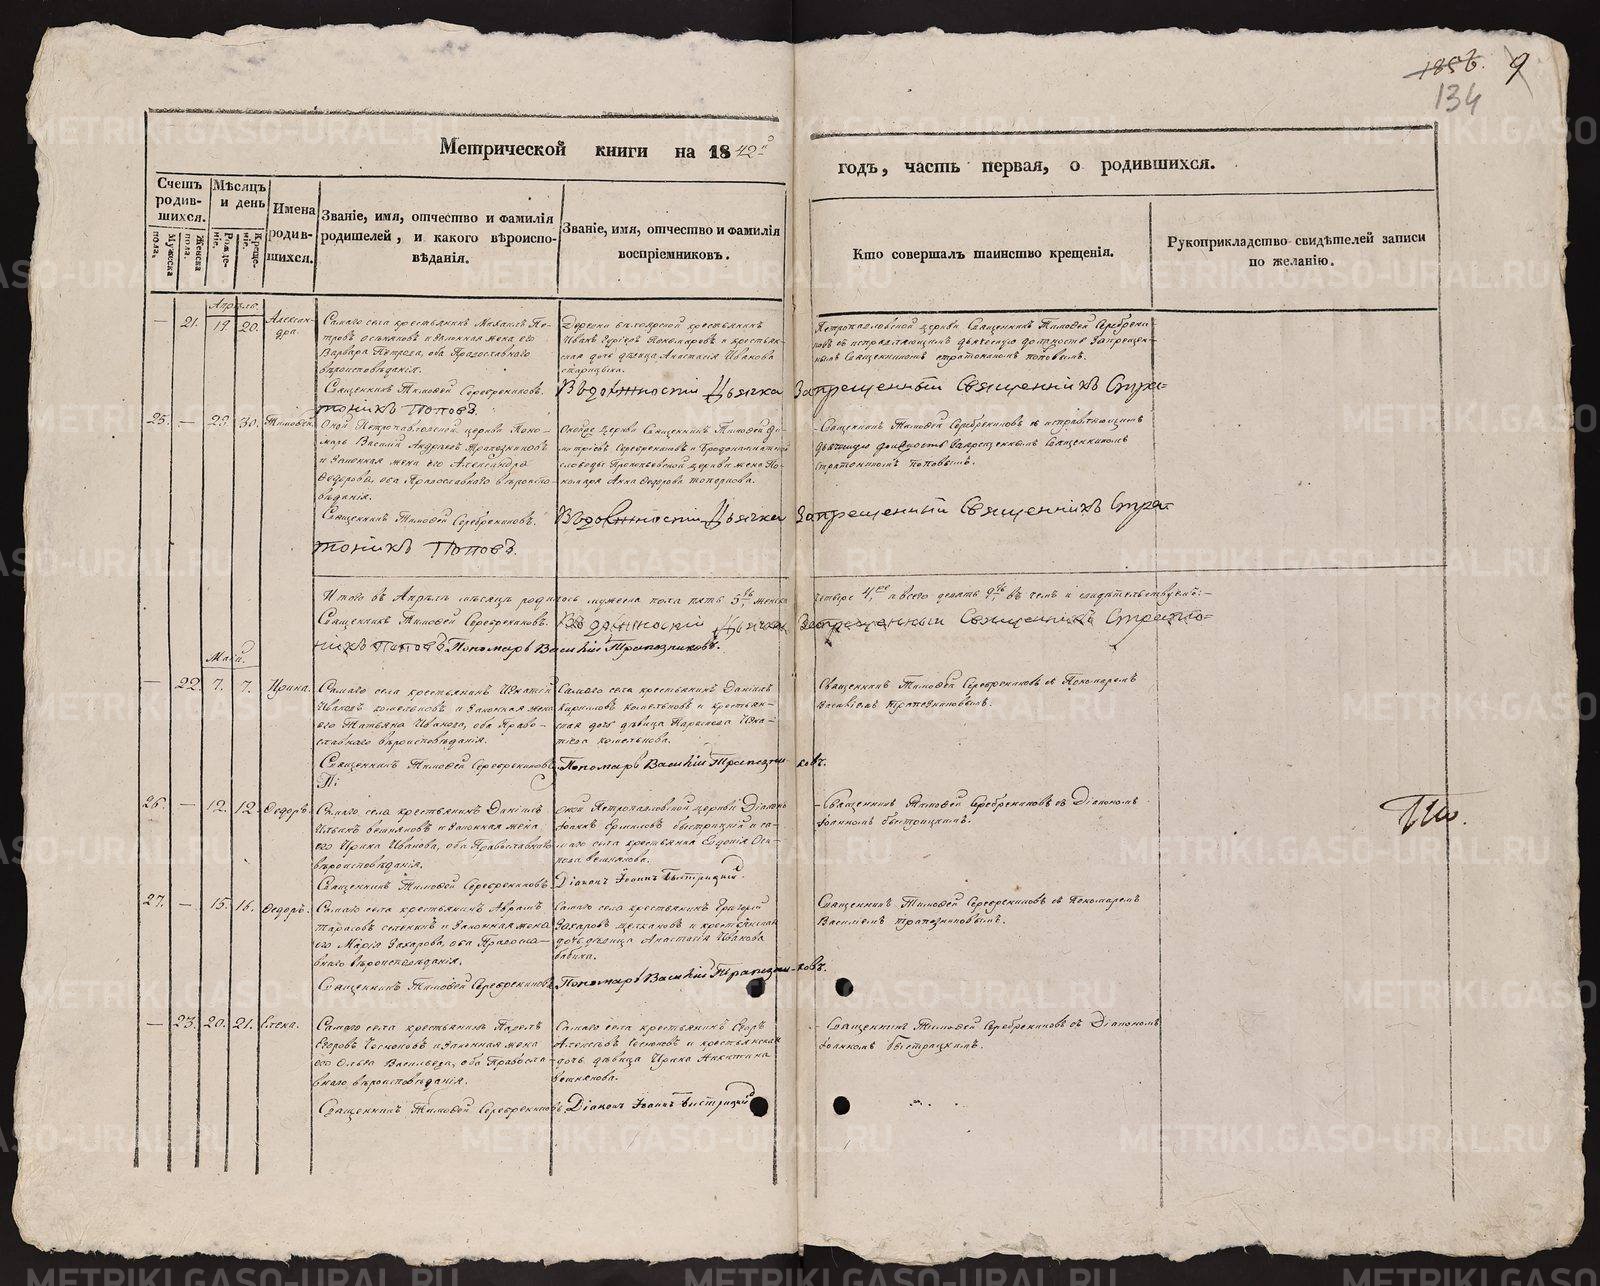 1856. 9
134
Метрической книги на 1842й
годъ, часть первая, о родившихся.
Счетъ родив-шихся.
Мужеска пола.
Женска пола.
Мѣсяцъ и день
Рожде-нія.
Креще-нія.
Имена родив-шихся.
Званіе, имя, отчество и фамилія
родителей, и какого вѣроиспо-
вѣданія.
Званіе, имя, отчество и фамилія
воспріемниковъ.
Кто совершалъ таинство крещенія.
Рукоприкладство свидѣтелей записи
по желанію.
Апрѣль.
— 21. 19. 20. Алексан-
дра.
Самаго села крестьянинъ Михаилъ Пе-
тровъ и законная жена его
Варвара Петрова, оба Православнаго
вѣроисповѣданія.
Священникъ Тимоѳей Серебрениковъ.
Деревни крестьянинъ
Иванъ Пономаревъ и крестьян-
ская дочь дѣвица Анастасія Иванова
Петропавловской церкви Священникъ Тимоѳей Серебрени-
ковъ съ исправляющимъ дьяческую должность Запрещен-
нымъ Священникомъ Стратоникомъ Поповымъ.
Въ должности Дьячка Запрещенный Священникъ Страто-
тоникъ Поповъ.
25. — 29. 30. Тимоѳей.
Оной Петропавловской церкви Поно-
марь Василій Андреевъ Трапезниковъ
и законная жена его Александра
Ѳедорова, оба Православнаго вѣроиспо-
вѣданія.
Священникъ Тимоѳей Серебрениковъ.
Оной же церкви Священникъ Тимоѳей Ди-
митріевъ Серебрениковъ и
слободы Прокопьевской церкви жена По-
номаря Анна Ѳедорова Топоркова.
Священникъ Тимоѳей Серебрениковъ съ исправляющимъ
дьяческую должность Запрещеннымъ Священникомъ
Стратоникомъ Поповымъ.
Въ должности Дьячка Запрещенный Священникъ Стра-
тоникъ Поповъ.
Итого въ Апрѣлѣ мѣсяцѣ родилось мужеска пола пять 5ть женска
четыре 4ре а всего девять 9ть въ чемъ и свидѣтельствуемъ:—
Священникъ Тимоѳей Серебрениковъ. Въ должности Дьячка Запрещенный Священникъ Страто-
никъ Поповъ Пономарь Василій Трапезниковъ.
Май.
— 22. 7. 7. Ирина.
Самаго села крестьянинъ Игнатій
Ивановъ Комельковъ и законная жена
его Татьяна Иванова, оба Право-
славнаго вѣроисповѣданія.
Священникъ Тимоѳей Серебрениковъ.
Самаго села крестьянинъ Даніилъ
Кириловъ Комельковъ и крестьян-
ская дочь дѣвица Игна-
тіева Комелькова.
Священникъ Тимоѳей Серебрениковъ съ Пономаремъ
Василіемъ Трапезниковымъ.
Пономарь Василій Трапезниковъ.
26. — 12. 12. Ѳедоръ.
Самаго села крестьянинъ Даніилъ
Ильинъ Вешняковъ и законная жена
его Ирина Иванова, оба Православнаго
вѣроисповѣданія.
Священникъ Тимоѳей Серебрениковъ.
Оной Петропавловской церкви Діаконъ
Іоаннъ Ермиловъ Быстрицкій и са-
маго села крестьянка Евдокія Оси-
пова Вешнякова.
Діаконъ Іоаннъ Быстрицкій.
Священникъ Тимоѳей Серебрениковъ съ Діакономъ
Іоанномъ Быстрицкимъ.
27. — 15. 16. Ѳедоръ.
Самаго села крестьянинъ Аврамъ
Тарасовъ и законная жена
его Марія Захарова, оба Правосла-
внаго вѣроисповѣданія.
Священникъ Тимоѳей Серебрениковъ
Самаго села крестьянинъ Григорій
Захаровъ и крестьянская
дочь дѣвица Анастасія Иванова
Священникъ Тимоѳей Серебрениковъ съ Пономаремъ
Василіемъ Трапезниковымъ.
Пономарь Василій Трапезниковъ.
— 23. 20. 21. Елена.
Самаго села крестьянинъ Павелъ
Егоровъ и законная жена
его Ольга Васильева, оба Правосла-
внаго вѣроисповѣданія.
Священникъ Тимоѳей Серебрениковъ.
Самаго села крестьянинъ Егоръ
Алексѣевъ и крестьянская
дочь дѣвица Ирина Никитина
Вешнякова.
Діаконъ Іоаннъ Быстрицкій
Священникъ Тимоѳей Серебрениковъ съ Діакономъ
Іоанномъ Быстрицкимъ.
METRIKI.GASO-URAL.RU